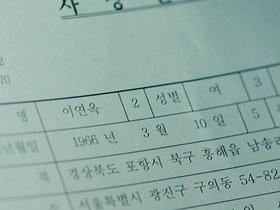 사 망
2
70
명 이연옥 2 성별 여 3
년월일 1966 년 3 월 10 일 5
적 경상북도 포항시 북구 흥해읍 남송리
서울특별시 광진구 구의동 54-82